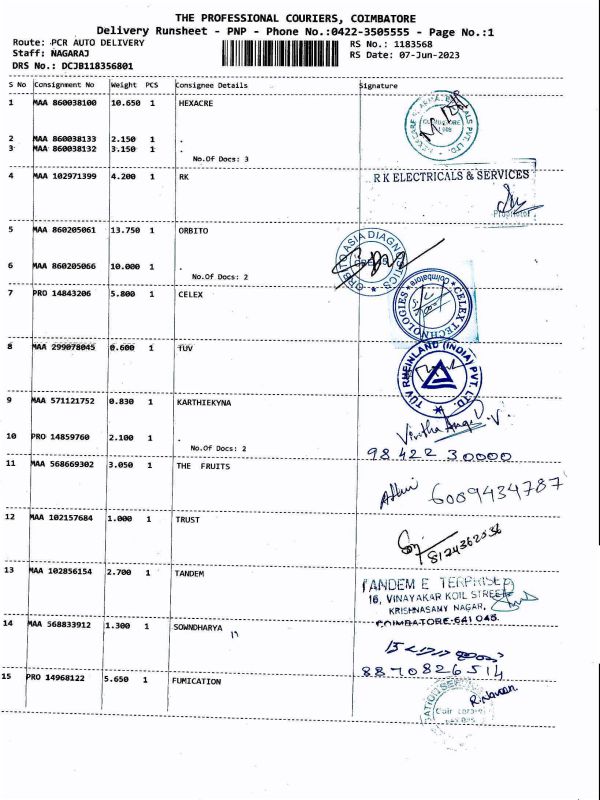 THE PROFESSIONAL COURIERS, COIMBATORE
Delivery Runsheet - PNP - Phone No.:0422-3505555 - Page No.:1
Route: PCR AUTO DELIVERY RS No.: 1183568
Staff: NAGARAJ RS Date: 07-Jun-2023
DRS No.: DCJB118356801
S No Consignment No Weight PCS Consignee Details Signature
1 MAA 860038100 10.650 1 HEXACRE
2 MAA 860038133 2.150 1 .
3 MAA 860038132 3.150 1 .
No.Of Docs: 3
4 MAA 102971399 4.200 1 RK
R K ELECTRICALS & SERVICES
Proprietor
5 MAA 860205061 13.750 1 ORBITO
ORBITO ASIA DIAGNOSTICS
6 MAA 860205066 10.000 1 .
No.Of Docs: 2
7 PRO 14843206 5.800 1 CELEX
CELEX TECHNOLOGIES * Coimbatore *
8 MAA 299078045 0.600 1 TUV
TÜV RHEINLAND (INDIA) PVT. LTD.
9 MAA 571121752 0.830 1 KARTHIEKYNA
10 PRO 14859760 2.100 1 .
No.Of Docs: 2
98422 30000
11 MAA 568669302 3.050 1 THE FRUITS
6009434787
12 MAA 102157684 1.000 1 TRUST
8124362036
13 MAA 102856154 2.700 1 TANDEM
TANDEM E TERPRISE
16, VINAYAKAR KOIL STREET
KRISHNASAMY NAGAR,
COIMBATORE-641 045.
14 MAA 568833912 1.300 1 SOWNDHARYA
8870826514
15 PRO 14968122 5.650 1 FUMICATION
R. Naveen